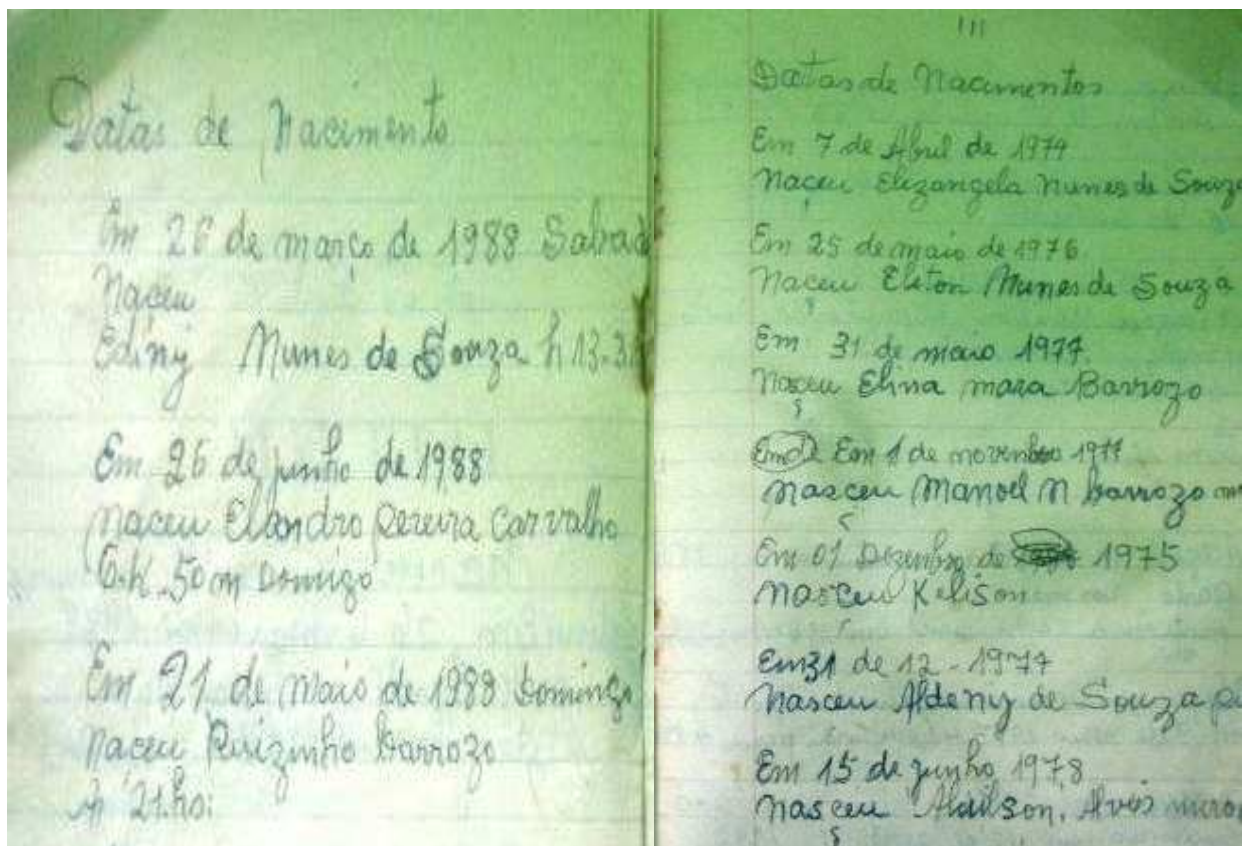 Datas de Nacimento
Em 26 de março de 1988 Sabad
Naçeu
Ediny Nunes de Souza h 13.3
Em 26 de junho de 1988
Naceu Elandro Pereira Carvalho
6.h. 50 m Domigo
Em 21 de Maio de 1989 Domingo
Naceu Ruizinho Barrozo
A 21.ho:
111
Datas de Nacimentos
Em 7 de Abril de 1974
Naçeu Elizangela Nunes de Souza
Em 25 de maio de 1976
Naçeu Eliton Nunes de Souza
Em 31 de maio 1977
Nasceu Elina mara Barrozo
Em 1 de novenbro 1977
Nasceu Manoel N barrozo
Em 01 Dezenbro de 1975
Nasceu Kelison
Em 31 de 12 - 1977
Nasceu Aldeny de Souza
Em 15 de junho 1978
Nasceu Alvés